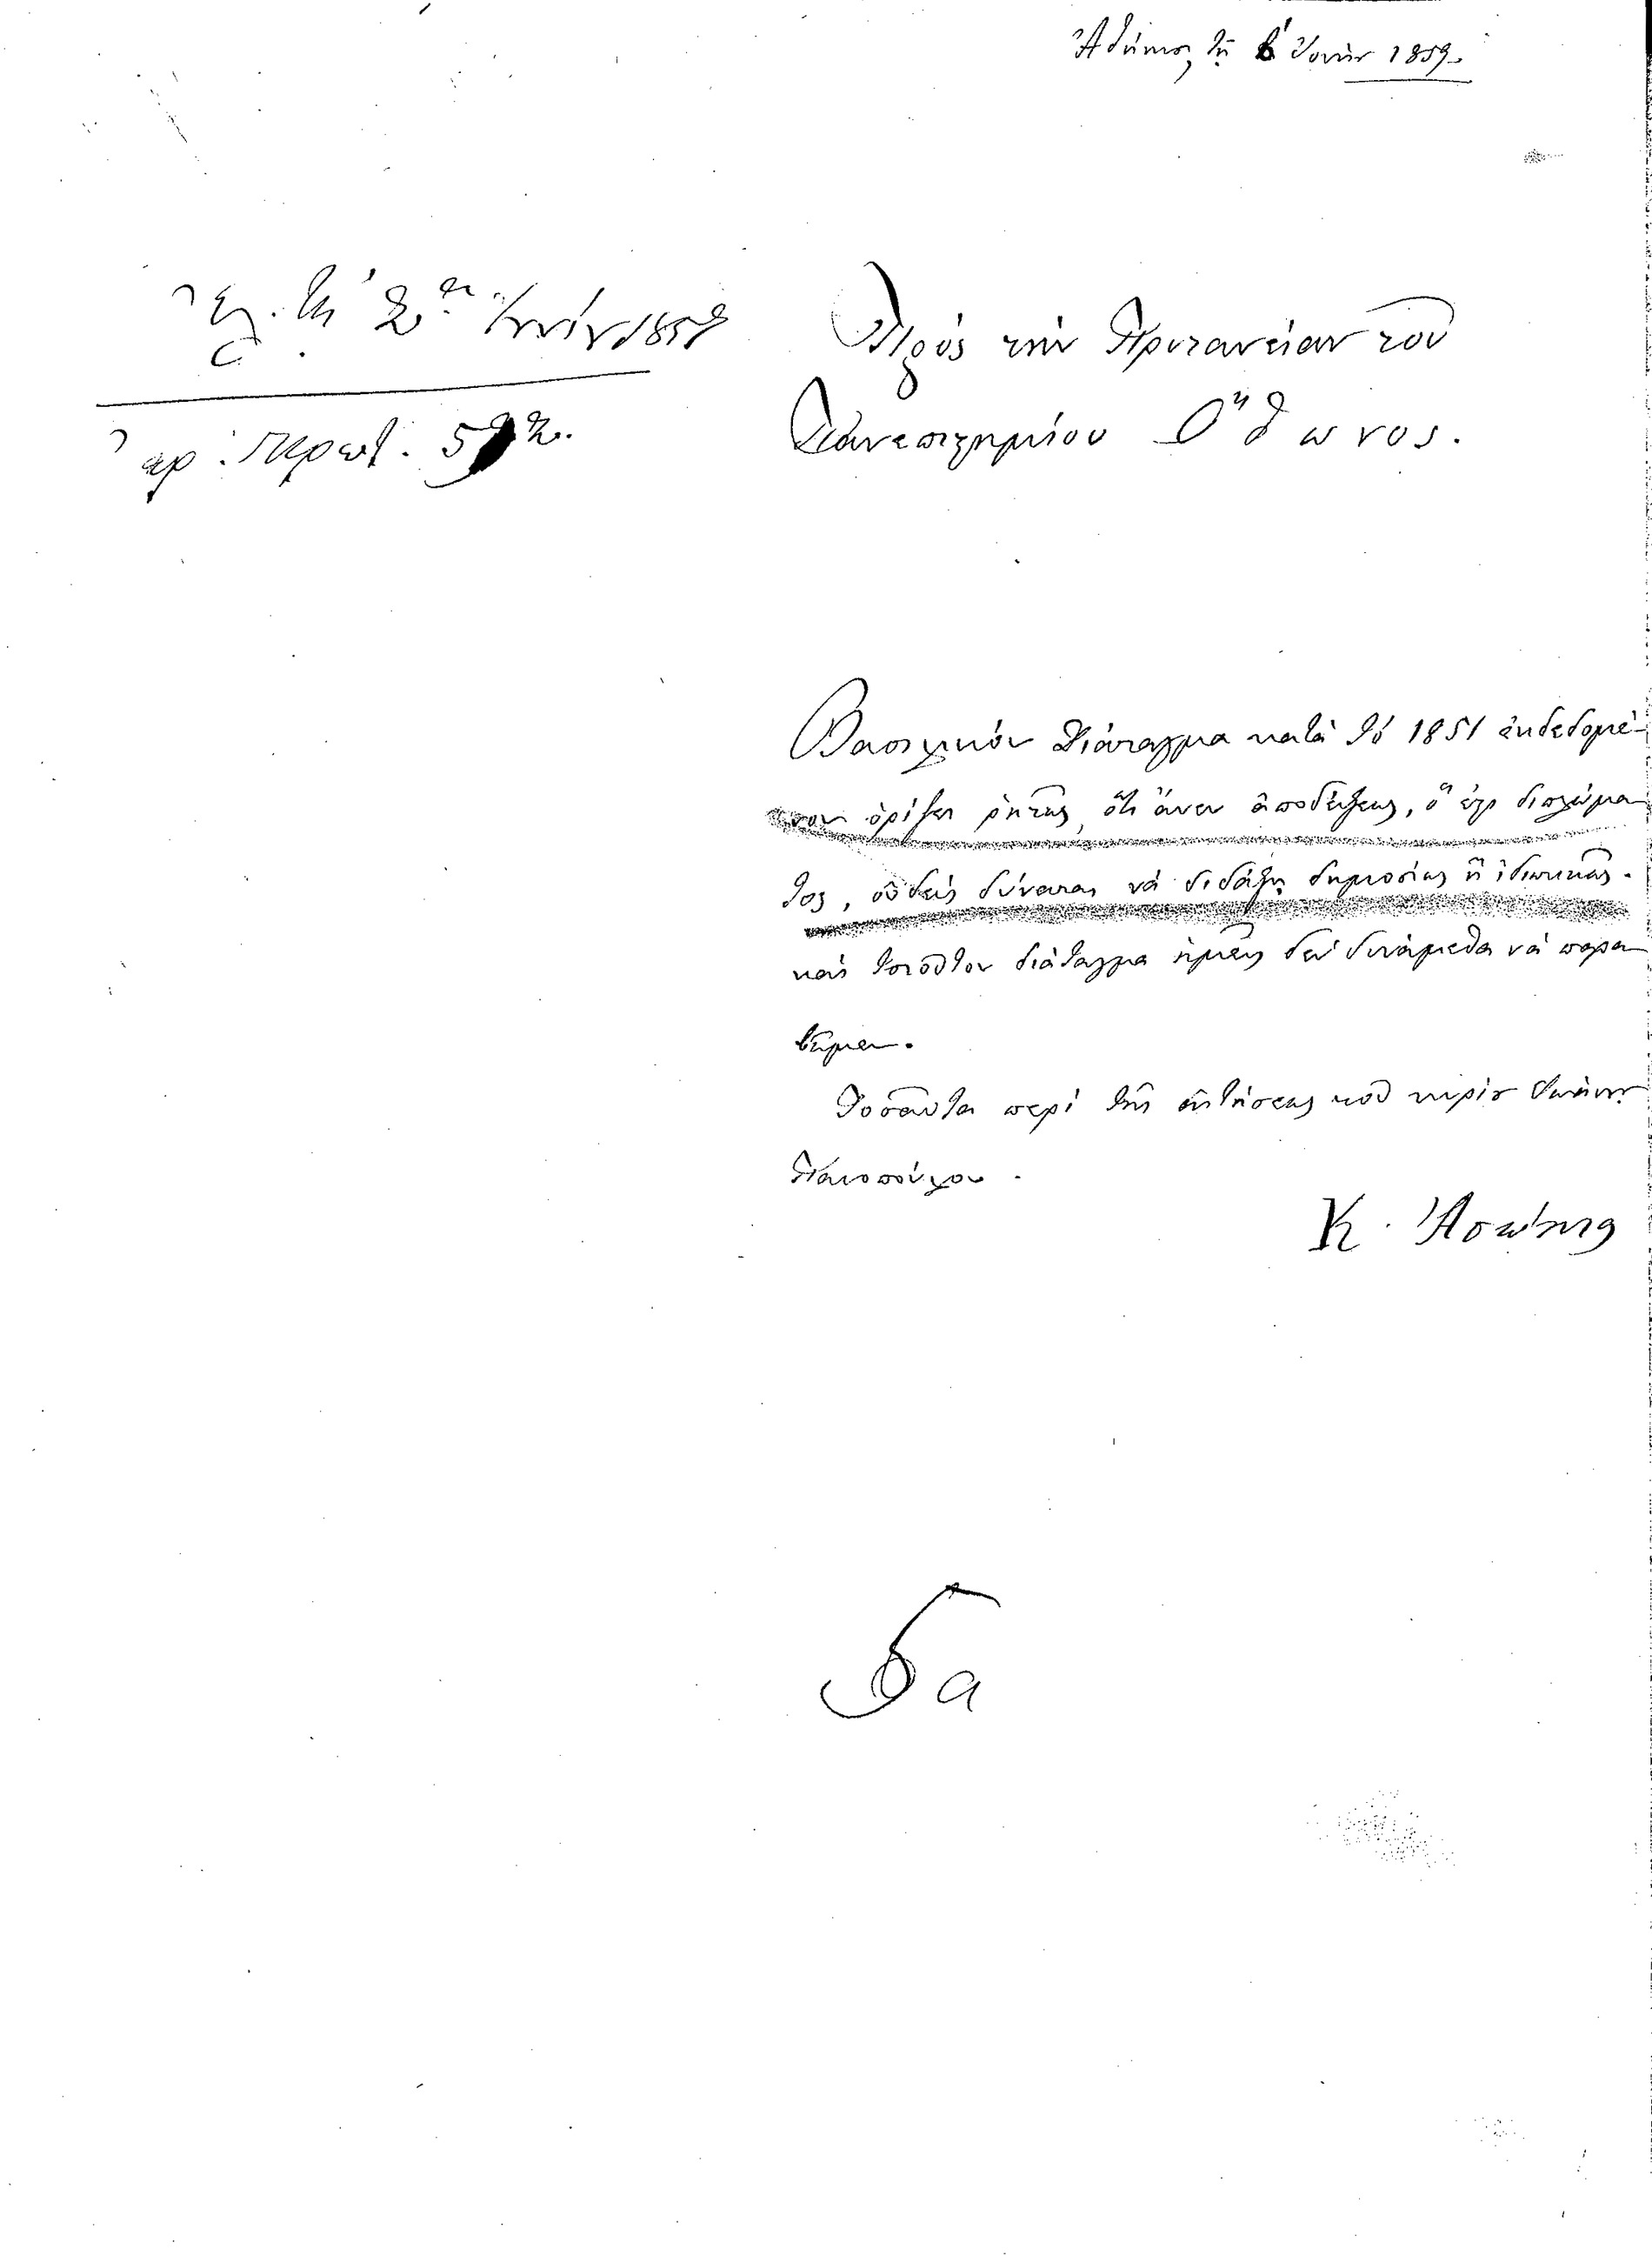 Ἀθήνησι, τῇ 6 Ἰουνίου 1859.
τῇ 2 Ἰουνίου 1859
ἀρ. Πρωτ.
Πρὸς τὴν Πρυτανείαν τοῦ
Πανεπιστημίου Ὄθωνος.
Βασιλικὸν Διάταγμα κατὰ τὸ 1851 ἐκδεδομέ-
νον ὁρίζει ῥητῶς, ὅτι ἄνευ ἀποδείξεως, ὅ ἐστι διπλώμα
τος, οὐδεὶς δύναται νὰ διδάξῃ δημοσίως ἢ ἰδιωτικῶς.
καὶ τοιοῦτον διάταγμα ἡμεῖς δὲν δυνάμεθα νὰ παρα
βῶμεν.
Τοσαῦτα περὶ τῆς αἰτήσεως τοῦ κυρίου Ἰωάννου
Κ. Ἀσώπιος
6α